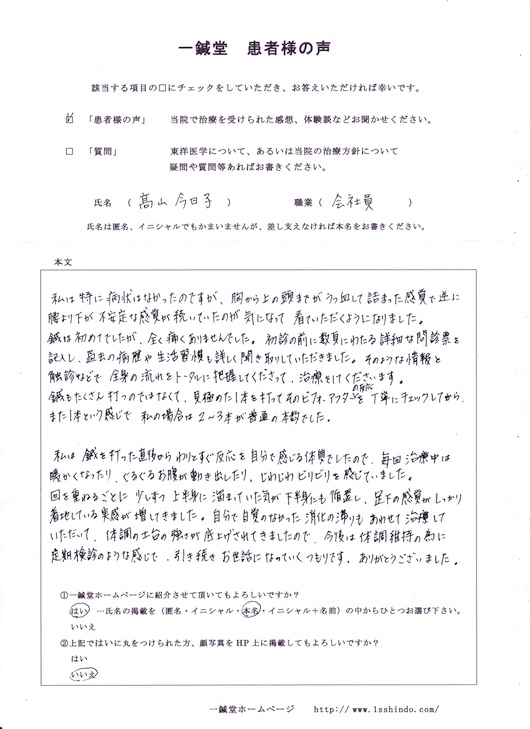 一鍼堂 患者様の声
該当する項目の□にチェックをしていただき、お答えいただければ幸いです。
☑ 「患者様の声」 当院で治療を受けられた感想、体験談などお聞かせください。
□ 「質問」 東洋医学について、あるいは当院の治療方針について
疑問や質問等あればお書きください。
氏名 ( 髙山 今日子 ) 職業 ( 会社員 )
氏名は匿名、イニシャルでもかまいませんが、差し支えなければ本名をお書きください。
本文
私は特に病状はなかったのですが、胸から上の頭までがうっ血して詰まった感覚で逆に
腰より下が不安定な感覚が続いていたのが気になって 看ていただくようになりました。
鍼は初めてでしたが、全く痛くありませんでした。初診の前に数頁にわたる詳細な問診票を
記入し、過去の病歴や生活習慣も詳しく聞き取りしていただきました。そのような情報と
触診などで 全身の流れをトータルに把握してくださって、治療をしてくださいます。
鍼もたくさん打つのではなくて、見極めた1本を打ってそのビフォーアフターの反応を 丁寧にチェックしてから
また1本という感じで 私の場合は2〜3本が普通の本数でした。
私は 鍼を打った直後からわりとすぐ反応を自分で感じる体質でしたので、毎回治療中は
暖かくなったり、ぐるぐるお腹が動き出したり、じわじわピリピリを感じていました。
回を重ねるごとに 少しずつ上半身に溜まっていた気が下半身にも循環し、足下の感覚がしっかり
着地している実感が増してきました。自分で自覚のなかった消化の滞りもあわせて治療して
いただいて、体調の土台の強さが底上げされてきましたので、今後は体調維持の為に
定期検診のような感じで、引き続きお世話になっていくつもりです。ありがとうございました。
①一鍼堂ホームページに紹介させて頂いてもよろしいですか？
はい …氏名の掲載を（匿名・イニシャル・本名・イニシャル＋名前）の中からひとつお選び下さい。
いいえ
②上記ではいに丸をつけられた方、顔写真をHP上に掲載してもよろしいですか？
はい
いいえ
一鍼堂ホームページ http://www.1sshindo.com/